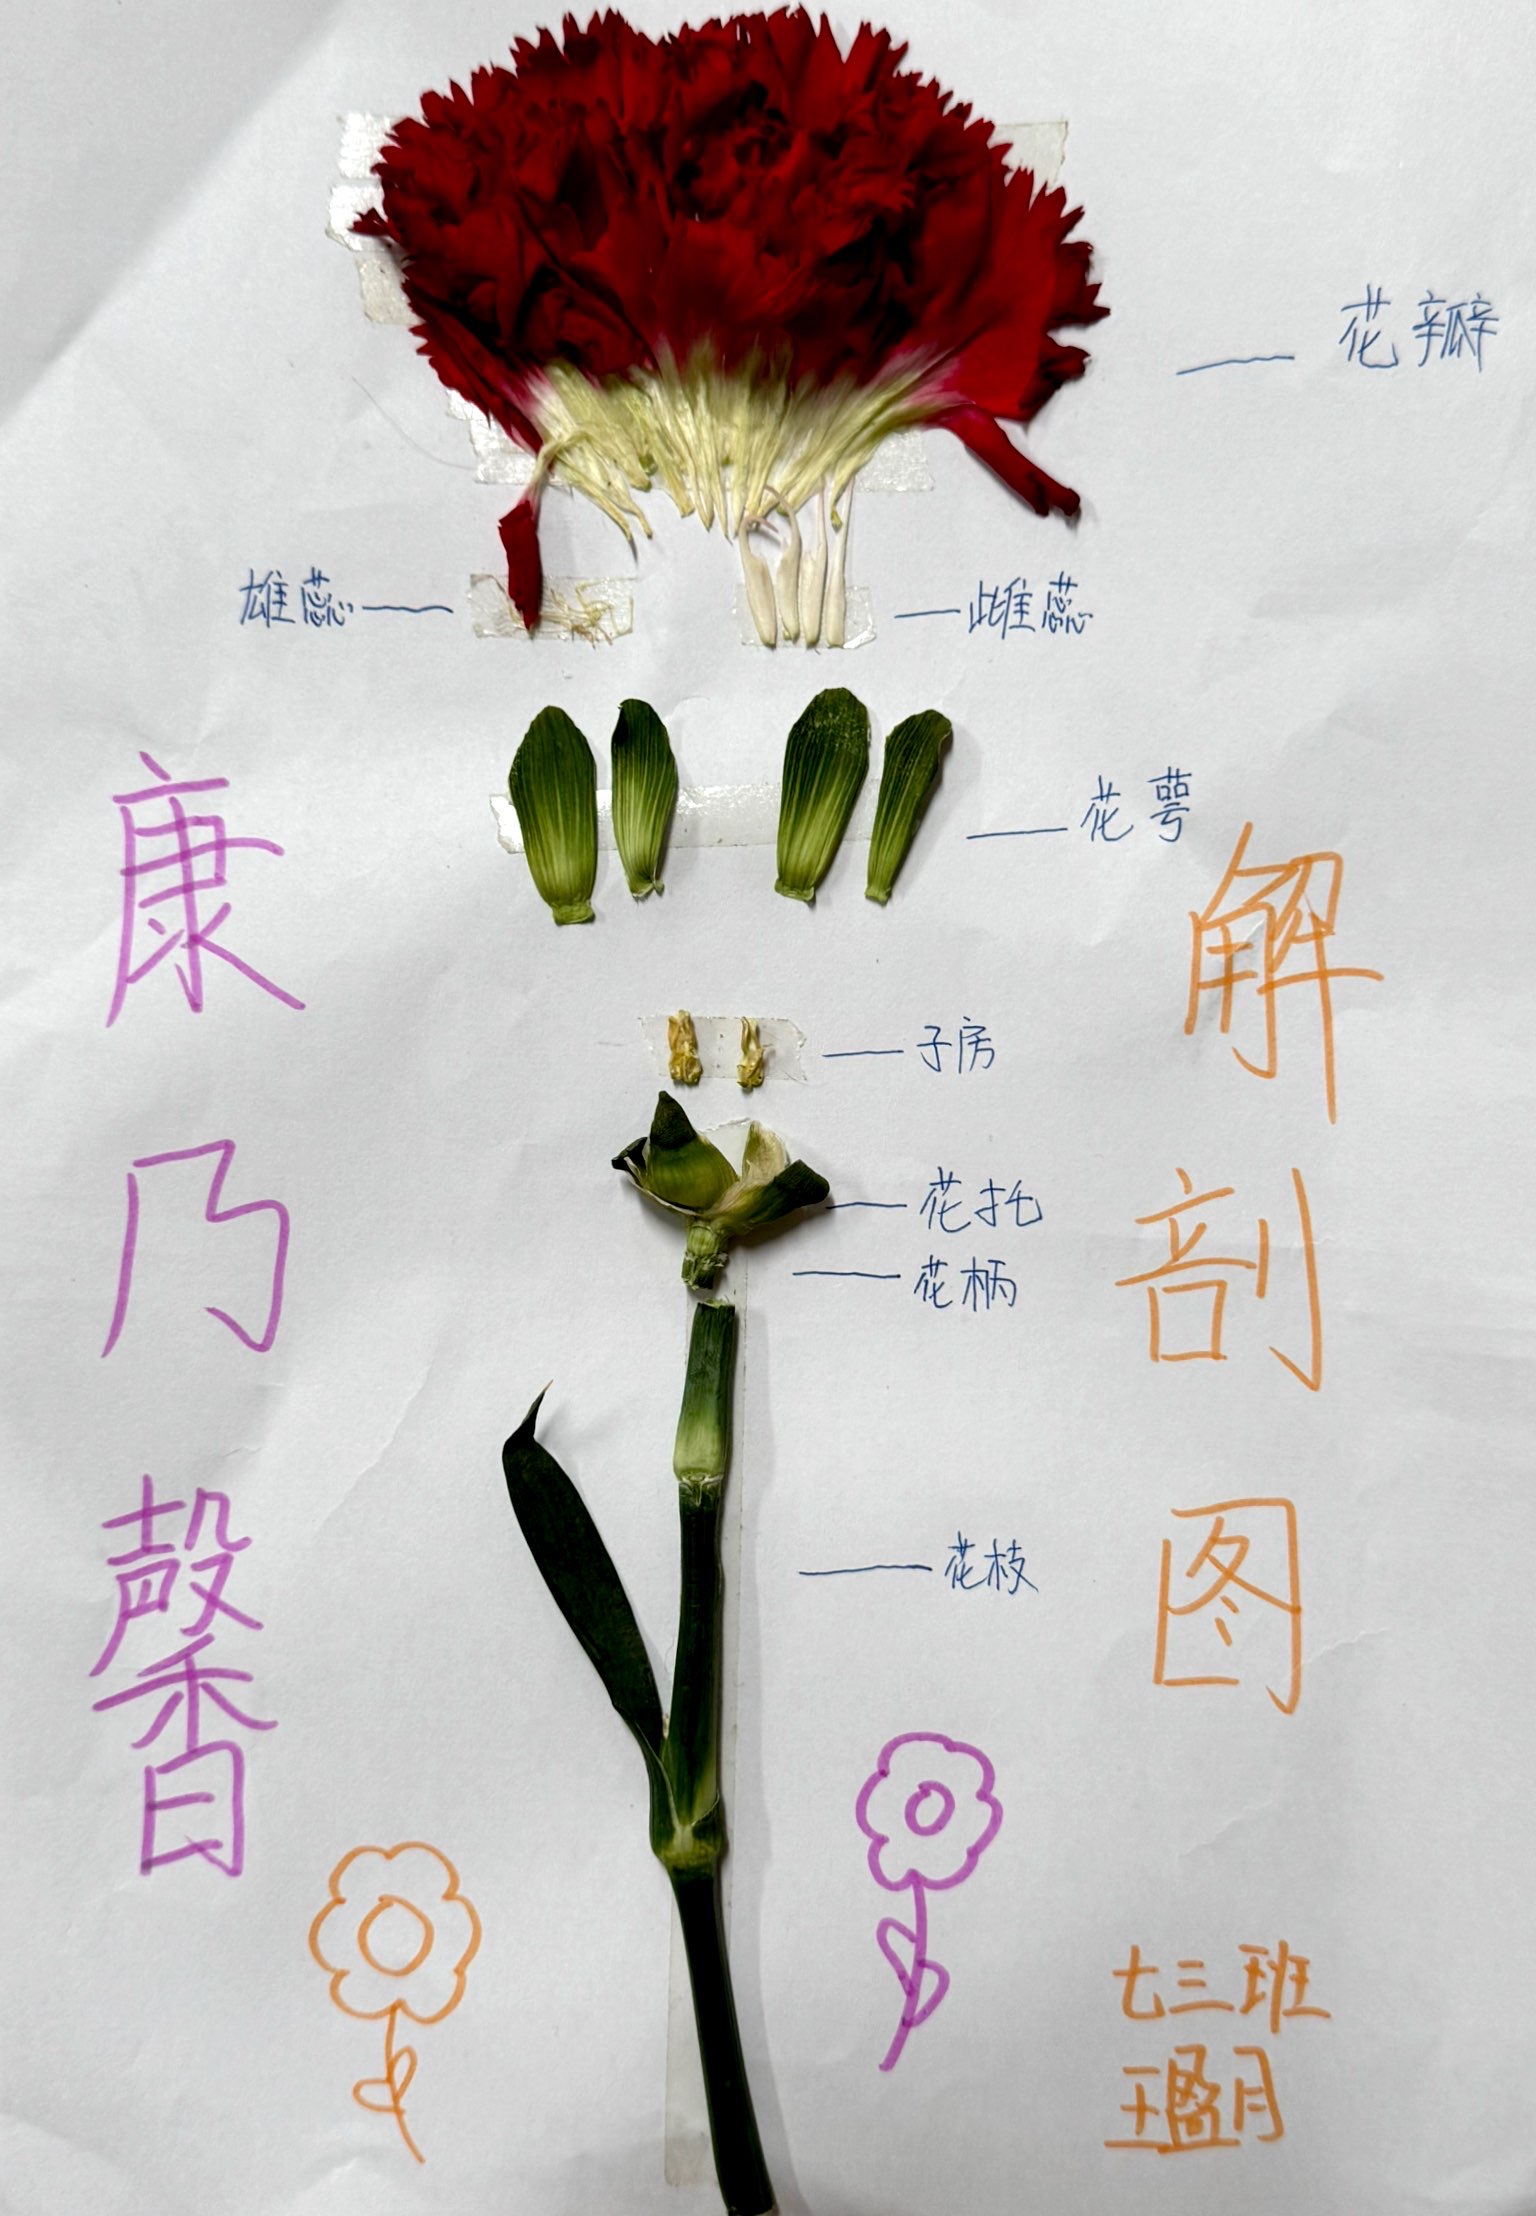 花瓣
雄蕊
雌蕊
花萼
子房
花托
花柄
花枝
康乃馨
解剖图
七三班